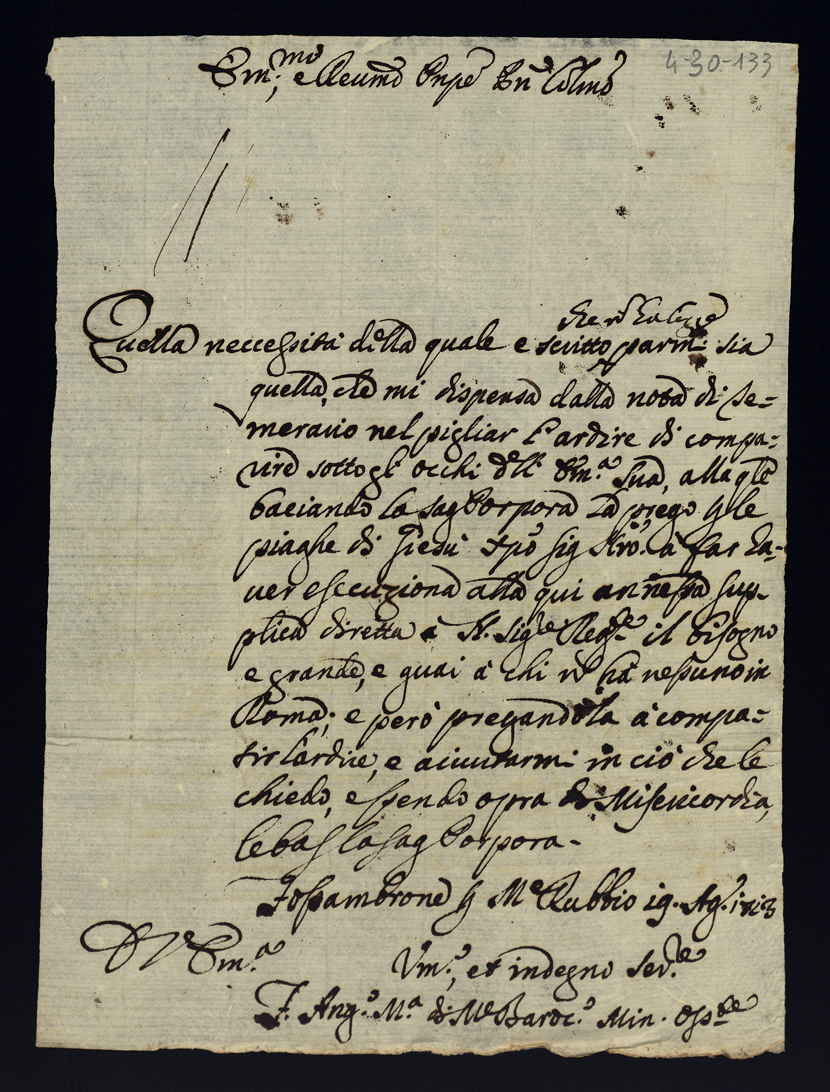 4-30-133
Em:mo e Reumo Pnpe Pne Colmo
che no ha legge
Quella neccessità della quale e scritto parmi sia
quella, che mi dispensa dalla nota di te=
merario nel pigliar l'ardire di compa=
rire sotto gli occhi dell' Em.a Sua, alla qle
baciando la sag Porpora La prego p le
piaghe di Giesù Xpo sig Nro. à far ha-
uer esecuziona alla qui annessa sup-
plica diretta à N. Sigre il bisogno
e grande, e guai à chi no hà nessuno in
Roma; e però pregandola à compa=
tir l'ardire, e aiuutarmi in ciò che le
chiedo, essendo opra di Misericordia,
le bas la sag Porpora-
Fossambrone p Me Rubbio 19. Ag.o
D V Em.a
Um.o, et indegno Ser.e
F. Ang.o M.a di Me Baroc.o Min. Oss.te